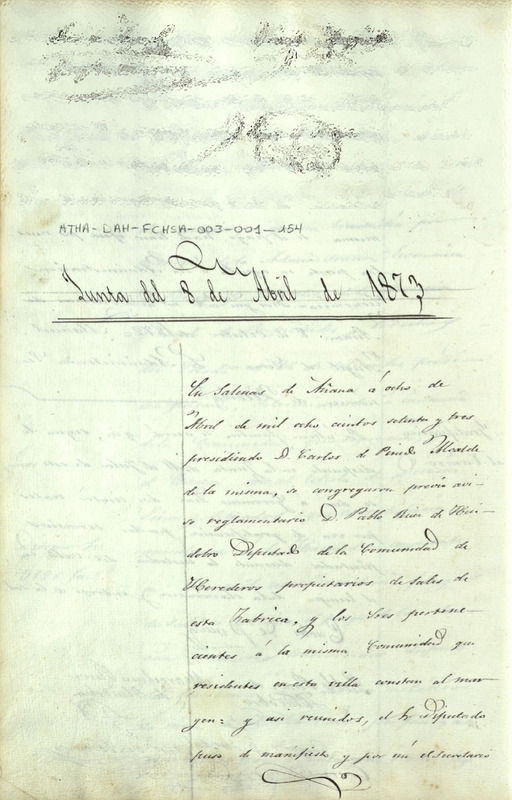 ATHA-DAH-FCHSA-003-001-154
Junta del 8 de Abril de 1873
En Salinas de Añana á ocho de
Abril de mil ocho cientos setenta y tres
presidiendo D. Carlos de Pinedo Alcalde
de la misma, se congregaron previo avi-
so reglamentario D. Pablo Ruiz de Hui-
dobro Diputado de la Comunidad de
Herederos propietarios de sales de
esta Fabrica, y los Sres pertene-
cientes á la misma Comunidad que
residentes en esta villa constan al mar
gen: y asi reunidos, el Sr Diputado
puso de manifiesto y por mi el secretario